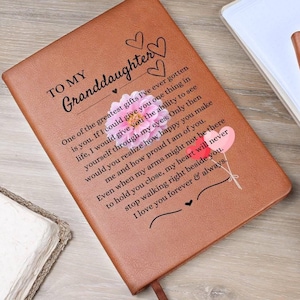 TO MY
Granddaughter
One of the greatest gifts I've ever gotten
is you. If I could give you one thing in
life, I would give you the ability to see
yourself through my eyes. Only then
would you realize how happy you make
me and how proud I am of you.
Even when my arms might not be there
to hold you close, my heart will never
stop walking right beside you.
I love you forever & always